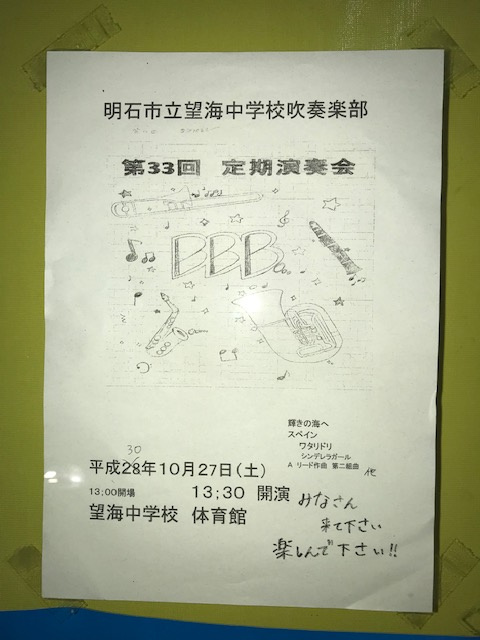 明石市立望海中学校吹奏楽部
第33回 定期演奏会
BBB
輝きの海へ
スペイン
ワタリドリ
シンデレラガール
A リード作曲 第二組曲 他
30
平成28年10月27日(土)
13:00開場 13:30 開演
望海中学校 体育館
みなさん
来て下さい
楽しんで下さい!!